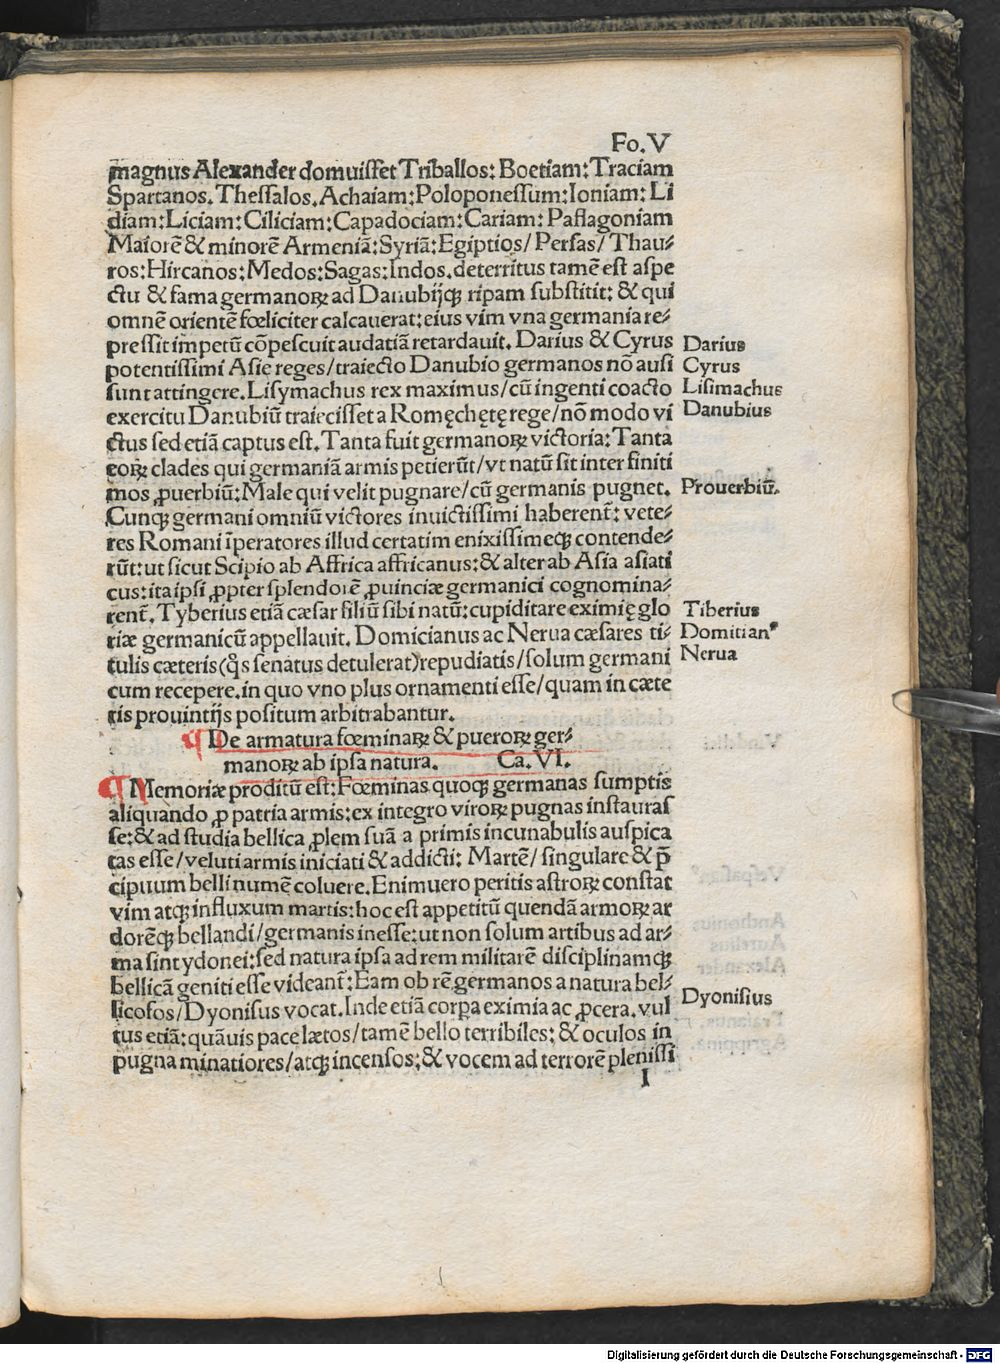 Fo. V
magnus Alexander domuisset Triballos: Boetiam: Traciam
Spartanos. Thessalos. Achaiam: Poloponessum: Ioniam: Li
diam: Liciam: Ciliciam: Capadociam: Cariam: Paflagoniam
Maiorē & minorē Armeniā: Syriā: Egiptios/ Persas/ Thau⸗
ros: Hircanos: Medos: Sagas: Indos. deterritus tamē est aspe
ctu & fama germanoꝝ ad Danubijꝗ ripam substitit: & qui
omnē orientē fœliciter calcauerat: eius vim vna germania re⸗
pressit impetū cōpescuit audatiā retardauit. Darius & Cyrus
potentissimi Asie reges/ traiecto Danubio germanos nō ausi
sunt attingere. Lisymachus rex maximus/ cū ingenti coacto
exercitu Danubiū traiecisset a Romęchętę rege/ nō modo vi
ctus sed etiā captus est. Tanta fuit germanoꝝ victoria: Tanta
eoꝝ clades qui germaniā armis petierūt/ vt natū sit inter finiti
mos ꝓuerbiū: Male qui velit pugnare/ cū germanis pugnet.
Cunqꝫ germani omniū victores inuictissimi haberent᷑: vete⸗
res Romani īperatores illud certatim enixissimeqꝫ contende⸗
rūt: ut sicut Scipio ab Affrica affricanus: & alter ab Asia asiati
cus: ita ipsi ꝓpter splendorē ꝓuinciæ germanici cognomina⸗
rent᷑. Tyberius etiā cæsar filiū sibi natū: cupiditate eximię glo
riæ germanicū appellauit. Domicianus ac Nerua cæsares ti⸗
tulis cæteris (q̄s senatus detulerat) repudiatis/ solum germani
cum recepere. in quo vno plus ornamenti esse/ quam in cæte
ris prouintijs positum arbitrabantur.
¶ De armatura fœminaꝝ & pueroꝝ ger⸗
manoꝝ ab ipsa natura. Ca. VI.
¶ Memoriæ proditū est: Fœminas quoqꝫ germanas sumptis
aliquando ꝓ patria armis: ex integro viroꝝ pugnas instauras
se: & ad studia bellica ꝓlem suā a primis incunabulis auspica
tas esse/ veluti armis iniciati & addicti: Martē/ singulare & p̄
cipuum belli numē coluere. Enimuero peritis astroꝝ constat
vim atqꝫ influxum martis: hoc est appetitū quendā armoꝝ ar
dorēqꝫ bellandi/ germanis inesse: ut non solum artibus ad ar⸗
ma sint ydonei: sed natura ipsa ad rem militarē disciplinamqꝫ
bellicā geniti esse videant᷑: Eam ob rē germanos a natura bel⸗
licosos/ Dyonisus vocat. Inde etiā corpa eximia ac ꝓcera. vul
tus etiā: quāuis pace lætos/ tamē bello terribiles: & oculos in
pugna minatiores/ atqꝫ incensos: & vocem ad terrorē plenissi
I
Darius
Cyrus
Lisimachus
Danubius
Prouerbiū.
Tiberius
Domitianꝰ
Nerua
Dyonisius
Digitalisierung gefördert durch die Deutsche Forschungsgemeinschaft - DFG